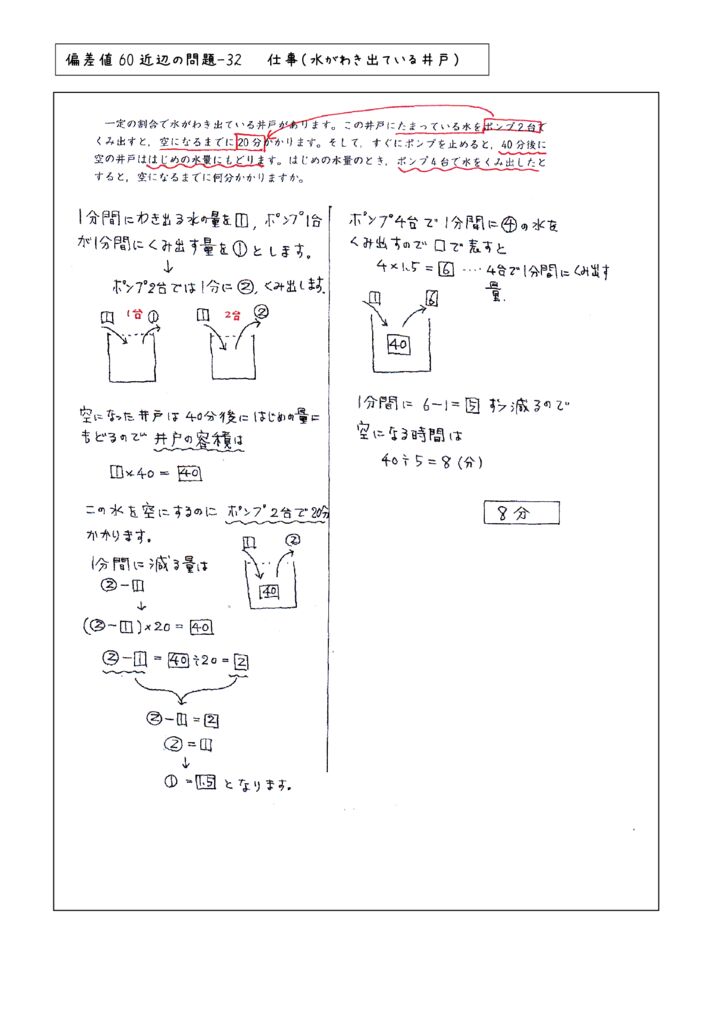 偏差値60近辺の問題-32　仕事(水がわき出ている井戸)
一定の割合で水がわき出ている井戸があります。この井戸にたまっている水をポンプ2台で
くみ出すと，空になるまでに20分かかります。そして，すぐにポンプを止めると，40分後に
空の井戸ははじめの水量にもどります。はじめの水量のとき，ポンプ4台で水をくみ出したと
すると，空になるまでに何分かかりますか。
1分間にわき出る水の量を1，ポンプ1台
が1分間にくみ出す量を①とします。
↓
ポンプ2台では1分に②，くみ出します。
1 1台 ① 1 2台 ②
空になった井戸は40分後にはじめの量に
もどるので 井戸の容積は
1×40＝40
この水を空にするのに ポンプ2台で20分
かかります。
1 ②
40
1分間に減る量は
②－1
↓
(②－1)×20＝40
②－1＝40÷20＝2
②－1＝2
②＝
↓
①＝1.5 となります。
ポンプ4台で1分間に④の水を
くみ出すので □で表すと
4×1.5＝6 ‥‥4台で1分間にくみ出す
量.
1 6
40
1分間に 6－1＝5 ずつ減るので
空になる時間は
40÷5＝8(分)
8分